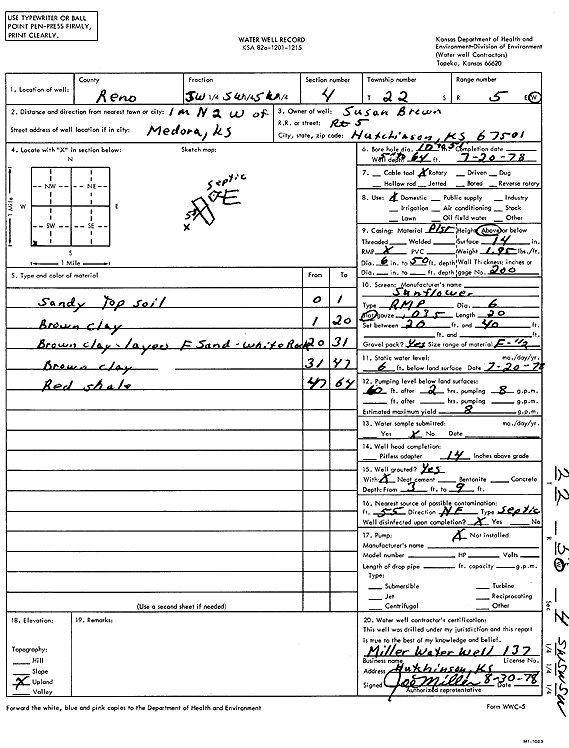 USE TYPEWRITER OR BALL
POINT PEN-PRESS FIRMLY,
PRINT CLEARLY.
WATER WELL RECORD
KSA 82a-1201-1215
Kansas Department of Health and
Environment-Division of Environment
(Water well Contractors)
Topeka, Kansas 66620
1. Location of well: County Reno Fraction SW 1/4 SW 1/4 SW 1/4 Section number 4 Township number T 22 S Range number R 5 E W
2. Distance and direction from nearest town or city: 1 m N 2 W of
Street address of well location if in city: Medora, KS
3. Owner of well: Susan Brown
R.R. or street: Rt 5
City, state, zip code: Hutchinson, KS 67501
4. Locate with "X" in section below:
N
NW NE
W E
SW SE
X
S
1 Mile
1 Mile
Sketch map:
Septic
55
X
5. Type and color of material From To
Sandy Top soil 0 1
Brown clay 1 20
Brown clay-layers F Sand-white Rock 20 31
Brown clay 31 47
Red shale 47 64
(Use a second sheet if needed)
6. Bore hole dia. Completion date
Well depth 64 ft. 7-20-78
7. Cable tool X Rotary Driven Dug
Hollow rod Jetted Bored Reverse rotary
8. Use: X Domestic Public supply Industry
Irrigation Air conditioning Stock
Lawn Oil field water Other
9. Casing: Material Plst Height: Above or below
Threaded Welded Surface 14 in.
RMP X PVC Weight 1.95 lbs./ft.
Dia. 6 in. to 50 ft. depth Wall Thickness: inches or
Dia. in. to ft. depth gage No. 200
10. Screen: Manufacturer's name
Sunflower
Type RMP Dia. 6
Slot gauze .035 Length 20
Set between 20 ft. and 40 ft.
ft. and ft.
Gravel pack? Yes Size range of material F-1/2
11. Static water level: mo./day/yr.
6 ft. below land surface Date 7-20-78
12. Pumping level below land surfaces:
60 ft. after 2 hrs. pumping 8 g.p.m.
ft. after hrs. pumping g.p.m.
Estimated maximum yield 8 g.p.m.
13. Water sample submitted: mo./day/yr.
Yes X No Date
14. Well head completion:
Pitless adapter 14 Inches above grade
15. Well grouted? Yes
With X Neat cement Bentonite Concrete
Depth: From 3 ft. to 9 ft.
16. Nearest source of possible contamination:
ft. 55 Direction NE Type Septic
Well disinfected upon completion? X Yes No
17. Pump: X Not installed
Manufacturer's name
Model number HP Volts
Length of drop pipe ft. capacity g.p.m.
Type:
Submersible Turbine
Jet Reciprocating
Centrifugal Other
18. Elevation:
Topography:
Hill
Slope
X Upland
Valley
19. Remarks:
20. Water well contractor's certification:
This well was drilled under my jurisdiction and this report
is true to the best of my knowledge and belief.
Miller Water Well 137
Business name License No.
Address Hutchinson, KS
Signed Joe Miller Date 8-30-78
Authorized representative
T 22 R 5 W Sec 4 SW SW SW
1/4 1/4 1/4
Forward the white, blue and pink copies to the Department of Health and Environment
Form WWC-5